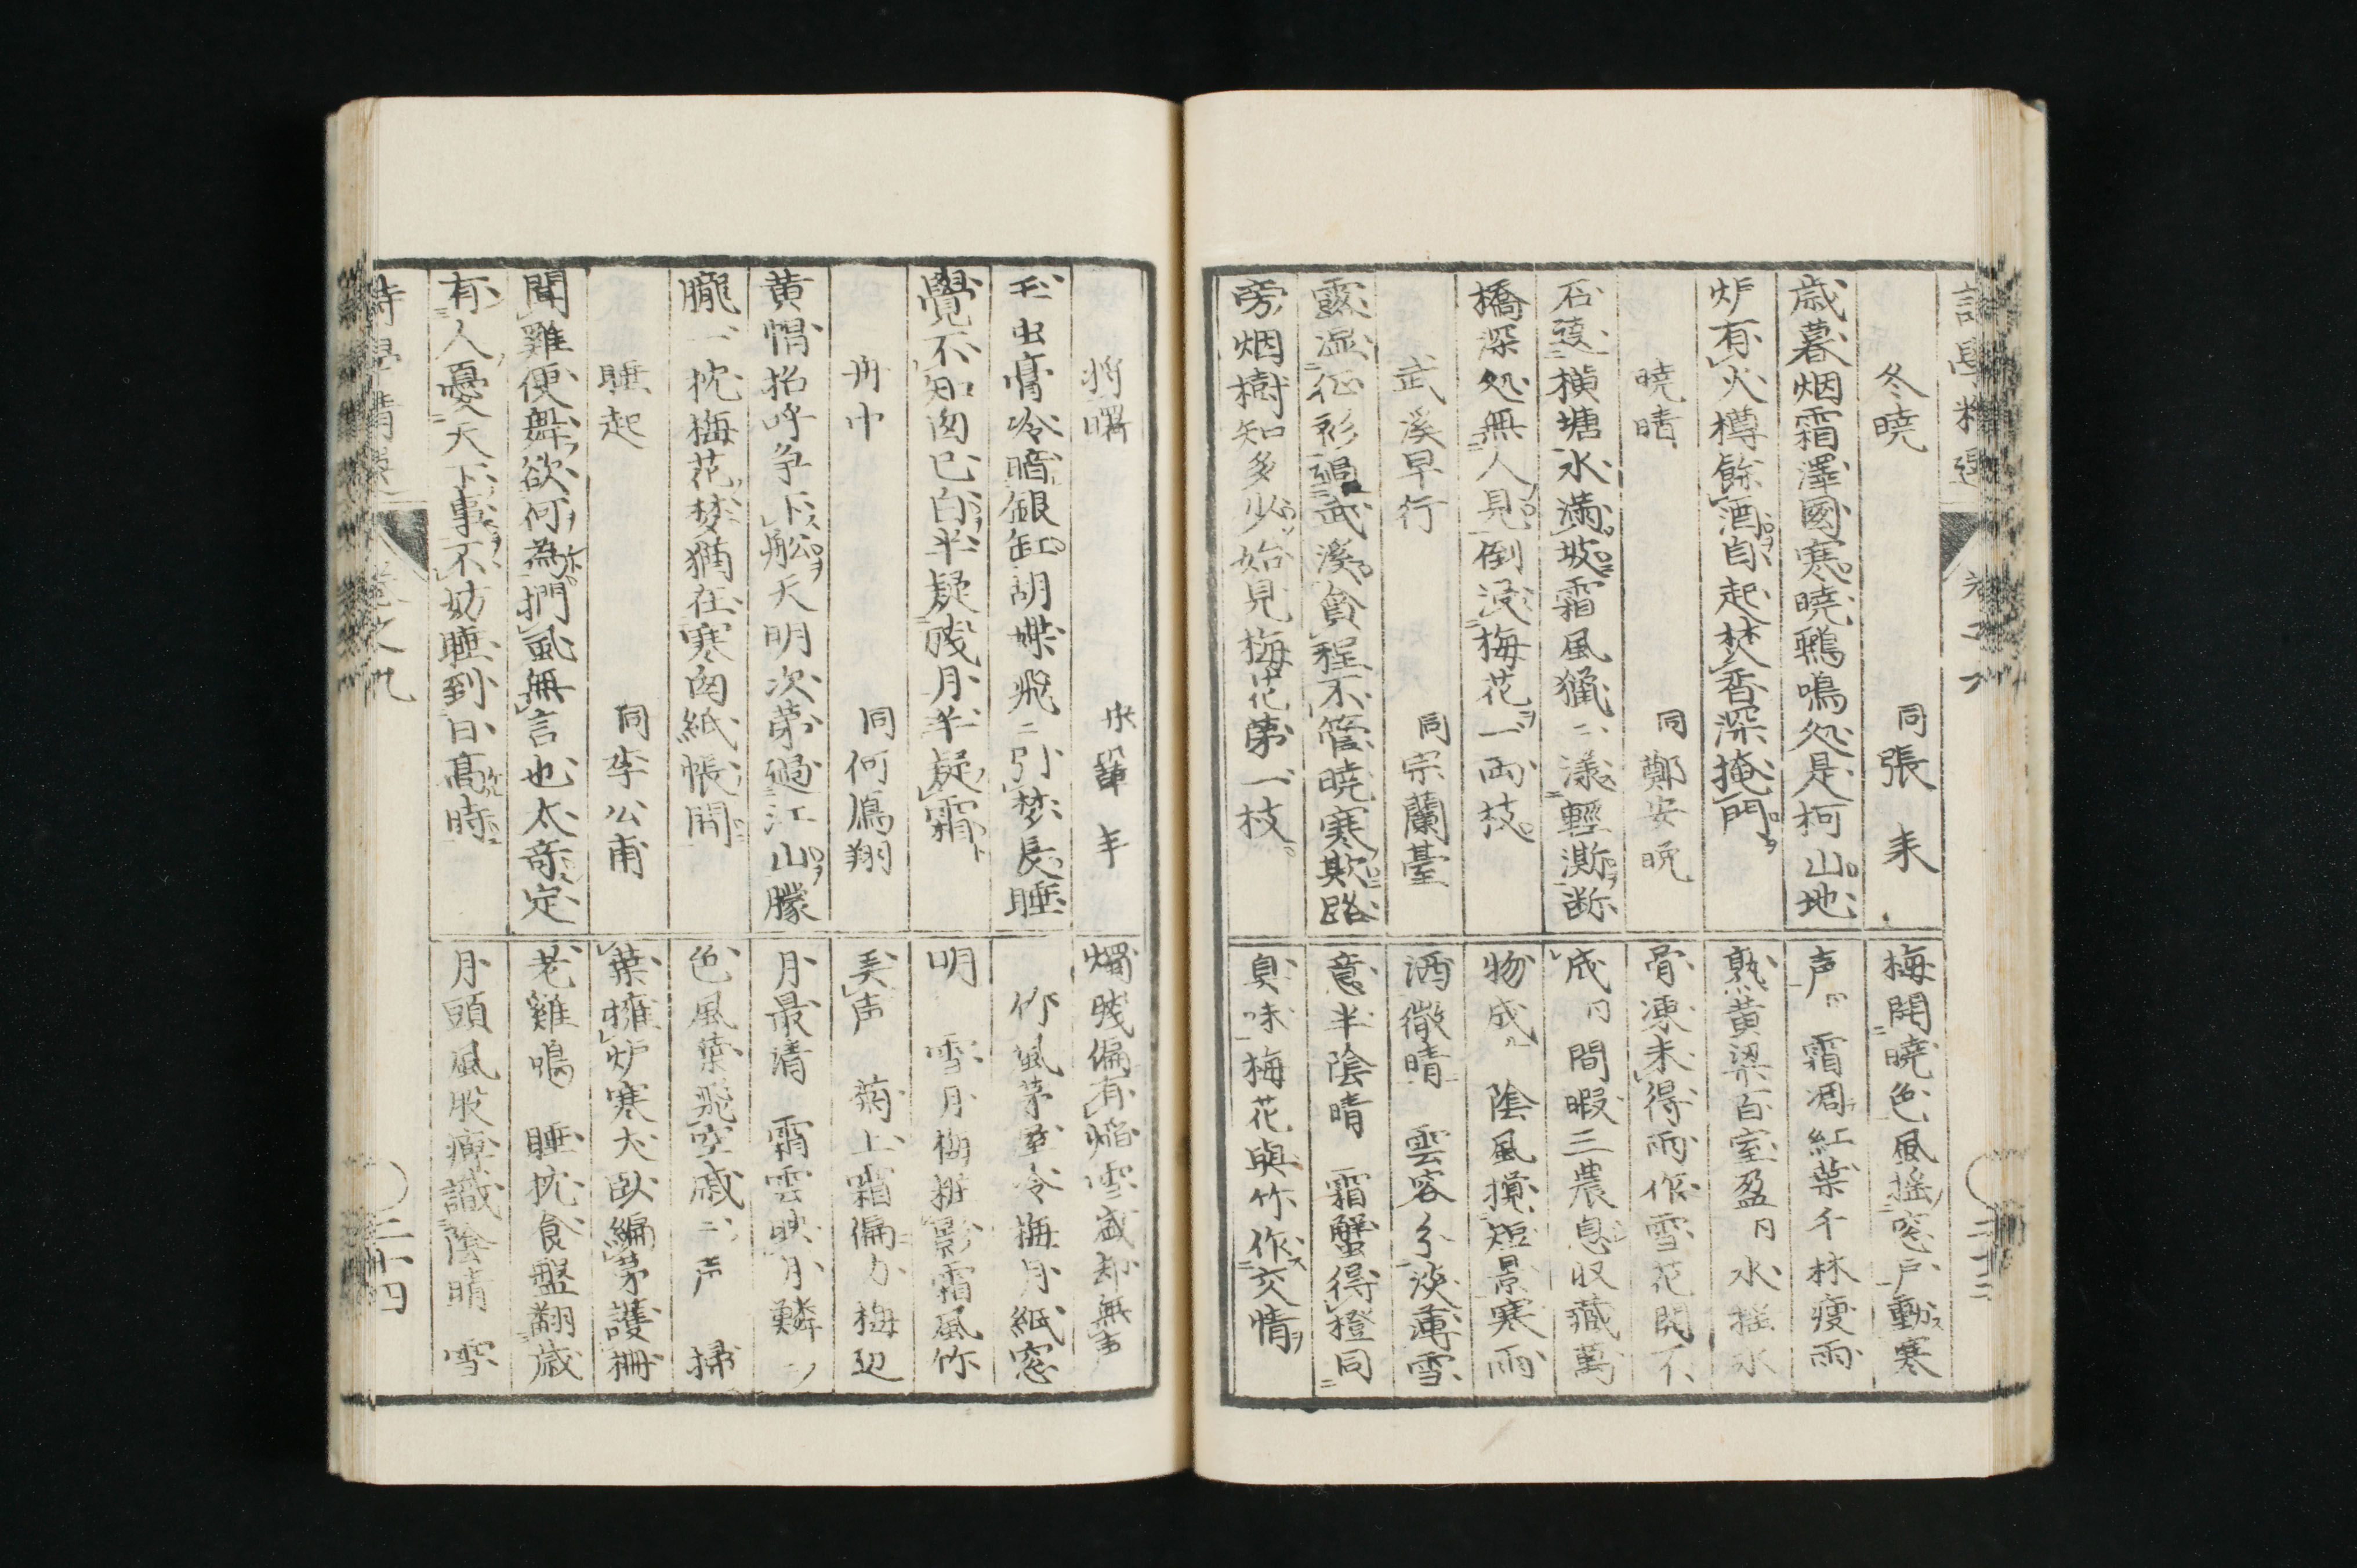 冬暁 同張耒
歳暮烟霜澤國寒暁鵶鳴処是柯山地
炉有火樽餘酒自起焚香深掩門
暁晴 同鄭安晩
石蓤横塘水満坡霜風獵〻漾輕澌断
橋深処無人見倒浸梅花一両枝
武溪早行 同宗蘭䑓
露湿征衫過武溪貪程不管暁寒欺路
旁烟樹知多少始見梅花第一枝
梅開暁色風揺窓戸動寒
声 霜凋紅葉千林痩雨
熟黄粱百室盈 水揺氷
骨凍未得雨作雪花開不
成 間暇三農息収蔵萬
物成 陰風攪短景寒雨
洒微晴 雲容分淡薄雪
意半陰晴 霜蟹得橙同
臭味梅花與竹作交情
将曙 宋
玉虫膏冷暗銀缸胡蝶飛〻引梦長睡
覺不知囱已白半疑残月半疑霜
舟中 同何鳫翔
黄帽招呼争下舩天明次第過江山朦
朧一枕梅花梦猶在寒囱紙帳間
睡起 同李公甫
聞雞便舞欲何為捫虱無言也太竒定
有人憂天下事不妨睡到日髙時
燭残偏有焔雪盛却無声
竹風茅室冷梅月紙窓
明 雪月梅粧影霜風竹
美声 菊上霜偏力梅辺
月最清 霜雲映月鱗〻
色風葉飛空戚〻声 掃
葉擁炉寒犬卧編茅護柵
老雞鳴 睡枕食盤翻歳
月頭風股痺識陰晴 雪
詩學精選 巻之九 三十四